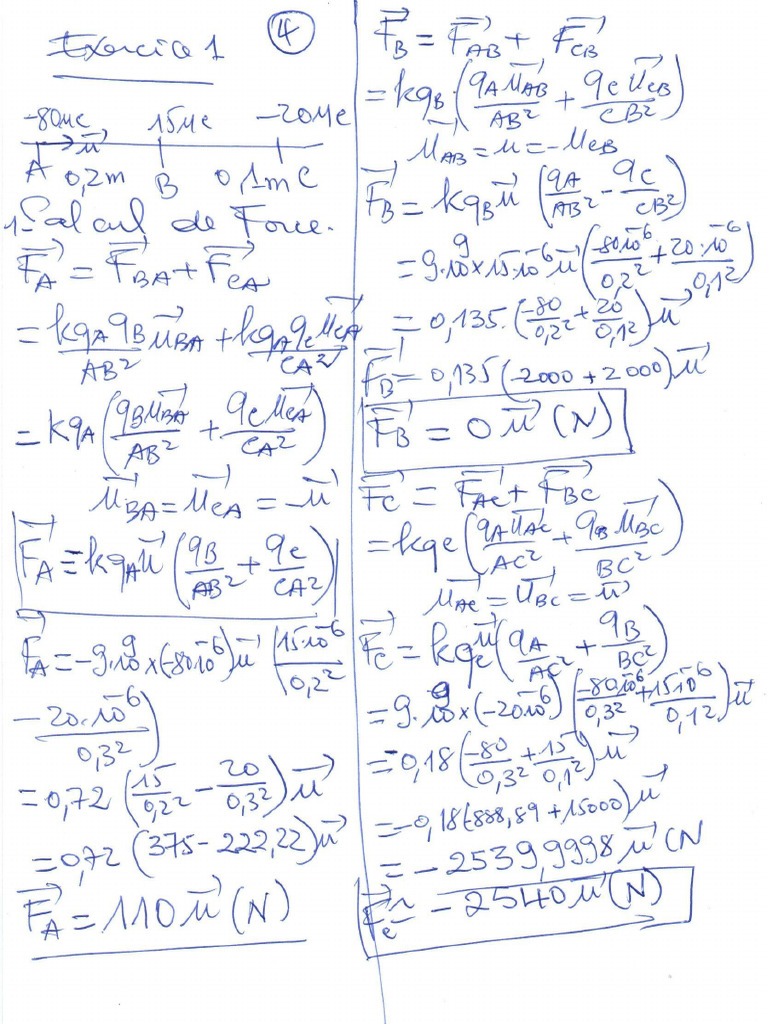 Exercice 1 ④
-80µc 15µc -20µc
u⃗
A 0,2m B 0,1m C
1-Calcul de Force.
F⃗_A = F⃗_BA + F⃗_CA
= kq_A q_B u⃗_BA / AB² + kq_A q_C u⃗_CA / CA²
= kq_A (q_B u⃗_BA / AB² + q_C u⃗_CA / CA²)
u⃗_BA = u⃗_CA = -u⃗
F⃗_A = kq_A u⃗ (q_B / AB² + q_C / CA²)
F⃗_A = -9.10⁹ × (-80.10⁻⁶) u⃗ (15.10⁻⁶ / 0,2²
- 20.10⁻⁶ / 0,3²)
= 0,72 (15 / 0,2² - 20 / 0,3²) u⃗
= 0,72 (375 - 222,22) u⃗
F⃗_A = 110 u⃗ (N)
F⃗_B = F⃗_AB + F⃗_CB
= kq_B (q_A u⃗_AB / AB² + q_C u⃗_CB / CB²)
u⃗_AB = u = -u_CB
F⃗_B = kq_B u⃗ (q_A / AB² - q_C / CB²)
= 9.10⁹ × 15.10⁻⁶ u⃗ (-80.10⁻⁶ / 0,2² + 20.10⁻⁶ / 0,1²)
= 0,135. (-80 / 0,2² + 20 / 0,1²) u⃗
F⃗_B = 0,135 (-2000 + 2000) u⃗
F⃗_B = 0 u⃗ (N)
F⃗_C = F⃗_AC + F⃗_BC
= kq_C (q_A u⃗_AC / AC² + q_B u⃗_BC / BC²)
u⃗_AC = u⃗_BC = u⃗
F⃗_C = kq_C u⃗ (q_A / AC² + q_B / BC²)
= 9.10⁹ × (-20.10⁻⁶) (-80.10⁻⁶ / 0,3² + 15.10⁻⁶ / 0,1²) u⃗
= -0,18 (-80 / 0,3² + 15 / 0,1²) u⃗
= -0,18 (-888,89 + 15000) u⃗
= -2539,9998 u⃗ (N
F⃗_C ≃ -2540 u⃗ (N)